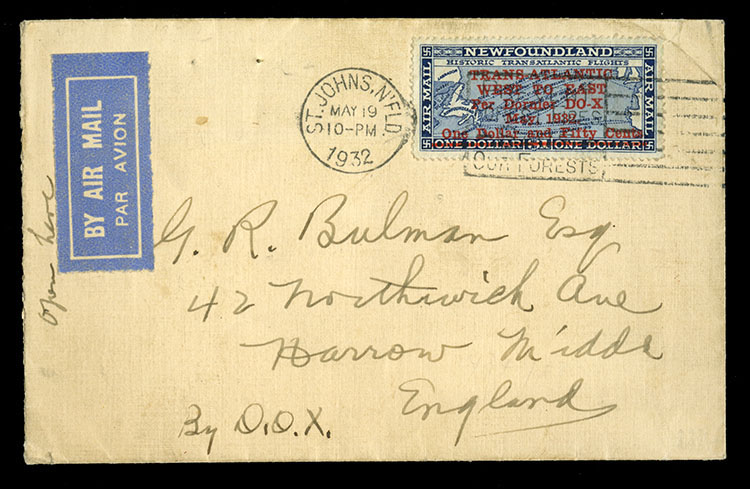 BY AIR MAIL
PAR AVION
open here
ST. JOHNS, N'FLD.
MAY 19
10-PM
1932
NEWFOUNDLAND
HISTORIC TRANSATLANTIC FLIGHTS
AIR MAIL
AIR MAIL
TRANS-ATLANTIC
WEST TO EAST
Per Dornier DO-X
May, 1932.
One Dollar and Fifty Cents
ONE DOLLAR $1 ONE DOLLAR
OUR FORESTS
G. R. Bulman Esq
42 Northwick Ave
Harrow M'ddx
England
By D.O.X.